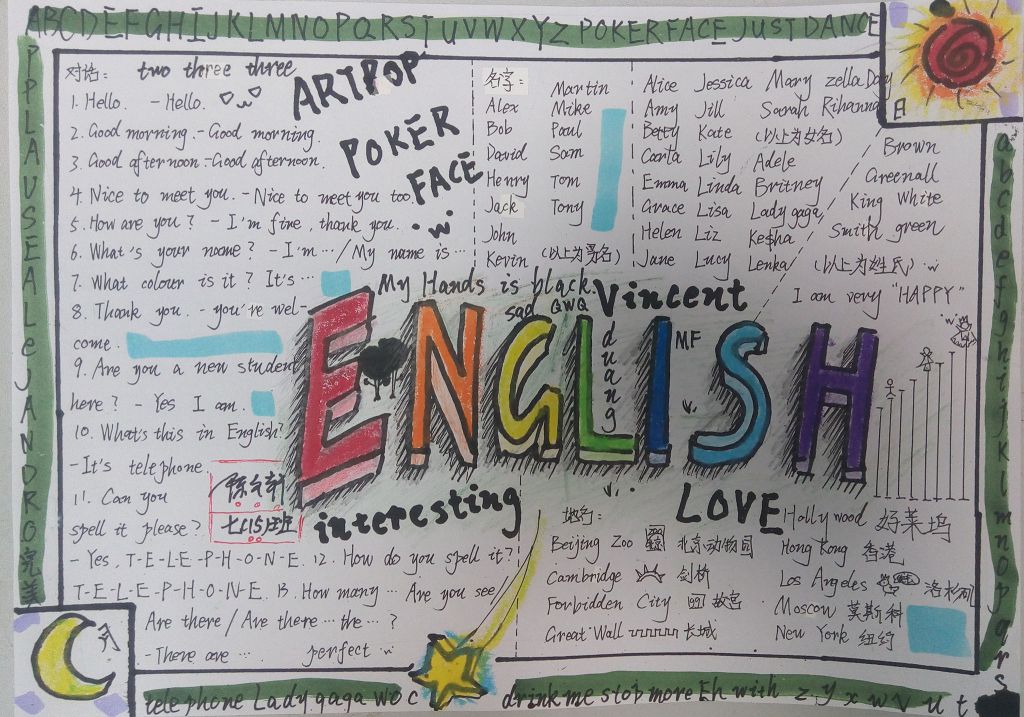 ABCDEFGHIJKLMNOPQRSTUVWXYZ POKERFACE JUST DANCE
PPLAUSEALeJANDRO完美
对话: two three three
1. Hello. - Hello.
2. Good morning. - Good morning.
3. Good afternoon. - Good afternoon.
4. Nice to meet you. - Nice to meet you too.
5. How are you? - I'm fine, thank you.
6. What's your name? - I'm ··· / My name is ···
7. What colour is it? It's ···
8. Thank you. - you're wel-
come.
9. Are you a new student
here? - Yes I am.
10. What's this in English?
- It's telephone.
11. Can you
spell it please?
- Yes, T-E-L-E-P-H-O-N-E. 12. How do you spell it?
T-E-L-E-P-H-O-N-E. 13. How many ··· Are you see
Are there / Are there ··· the ··· ?
- There are ··· perfect
ARTPOP
POKER
FACE
名字:
Alex
Bob
David
Henry
Jack
John
Kevin
Martin
Mike
Paul
Sam
Tom
Tony
(以上为男名)
Alice Jessica Mary zella Day
Amy Jill Sarah Rihanna
Betty Kate (以上为女名)
Carta Lily Adele
Emma Linda Britney
Grace Lisa Lady gaga
Helen Liz Kesha
Jane Lucy Lenka (以上为姓氏)
日
Brown
Greenall
King White
Smith green
I am very "HAPPY"
My Hands is black.
sad QWQ
Vincent
duang
MF
ENGLISH
interesting
LOVE
七(15)班
地名:
Beijing Zoo 北京动物园
Cambridge 剑桥
Forbidden City 故宫
Great Wall 长城
Hollywood 好莱坞
Hong Kong 香港
Los Angeles 洛杉矶
Moscow 莫斯科
New York 纽约
月
telephone Lady gaga woc drink me stop more Eh with z y x w v u t
abcdefghijklmnopqrs